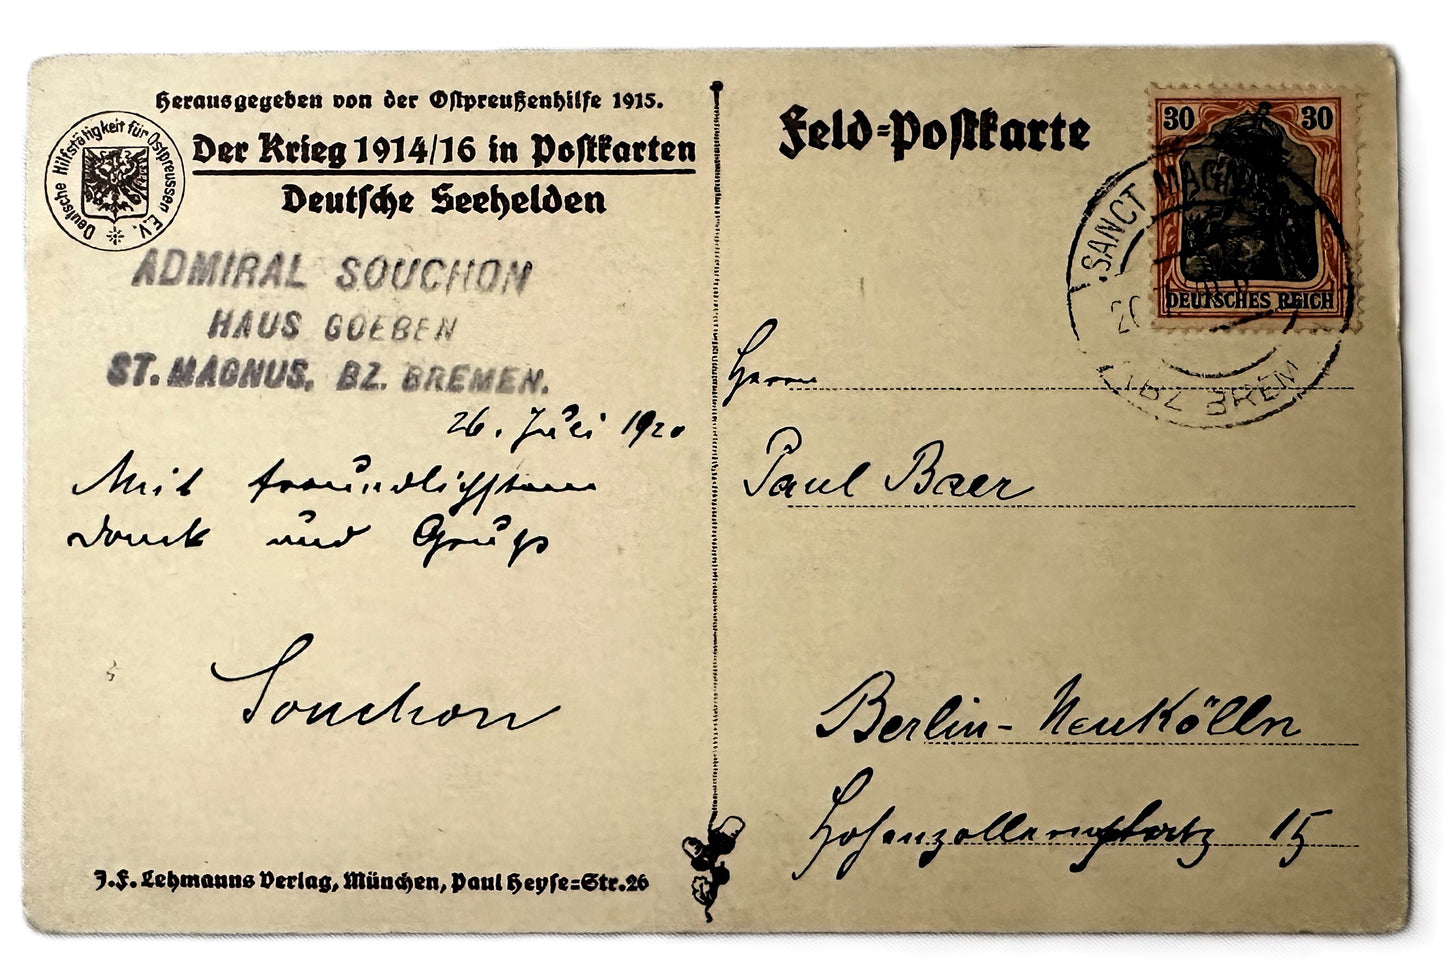 Herausgegeben von der Ostpreußenhilfe 1915.
Deutsche Hilfstätigkeit für Ostpreussen E.V.
Der Krieg 1914/16 in Postkarten
Deutsche Seehelden
ADMIRAL SOUCHON
HAUS GOEBEN
ST. MAGNUS, BZ. BREMEN.
26. Juli 1920
Mit freundlichstem
Dank und Gruß
Souchon
J.F. Lehmanns Verlag, München, Paul Heyse=Str. 26
Feld=Postkarte
30 30
DEUTSCHES REICH
SANCT MAGNUS
BZ BREM
Herrn
Paul Baer
Berlin-Neukölln
Hohenzollernplatz 15